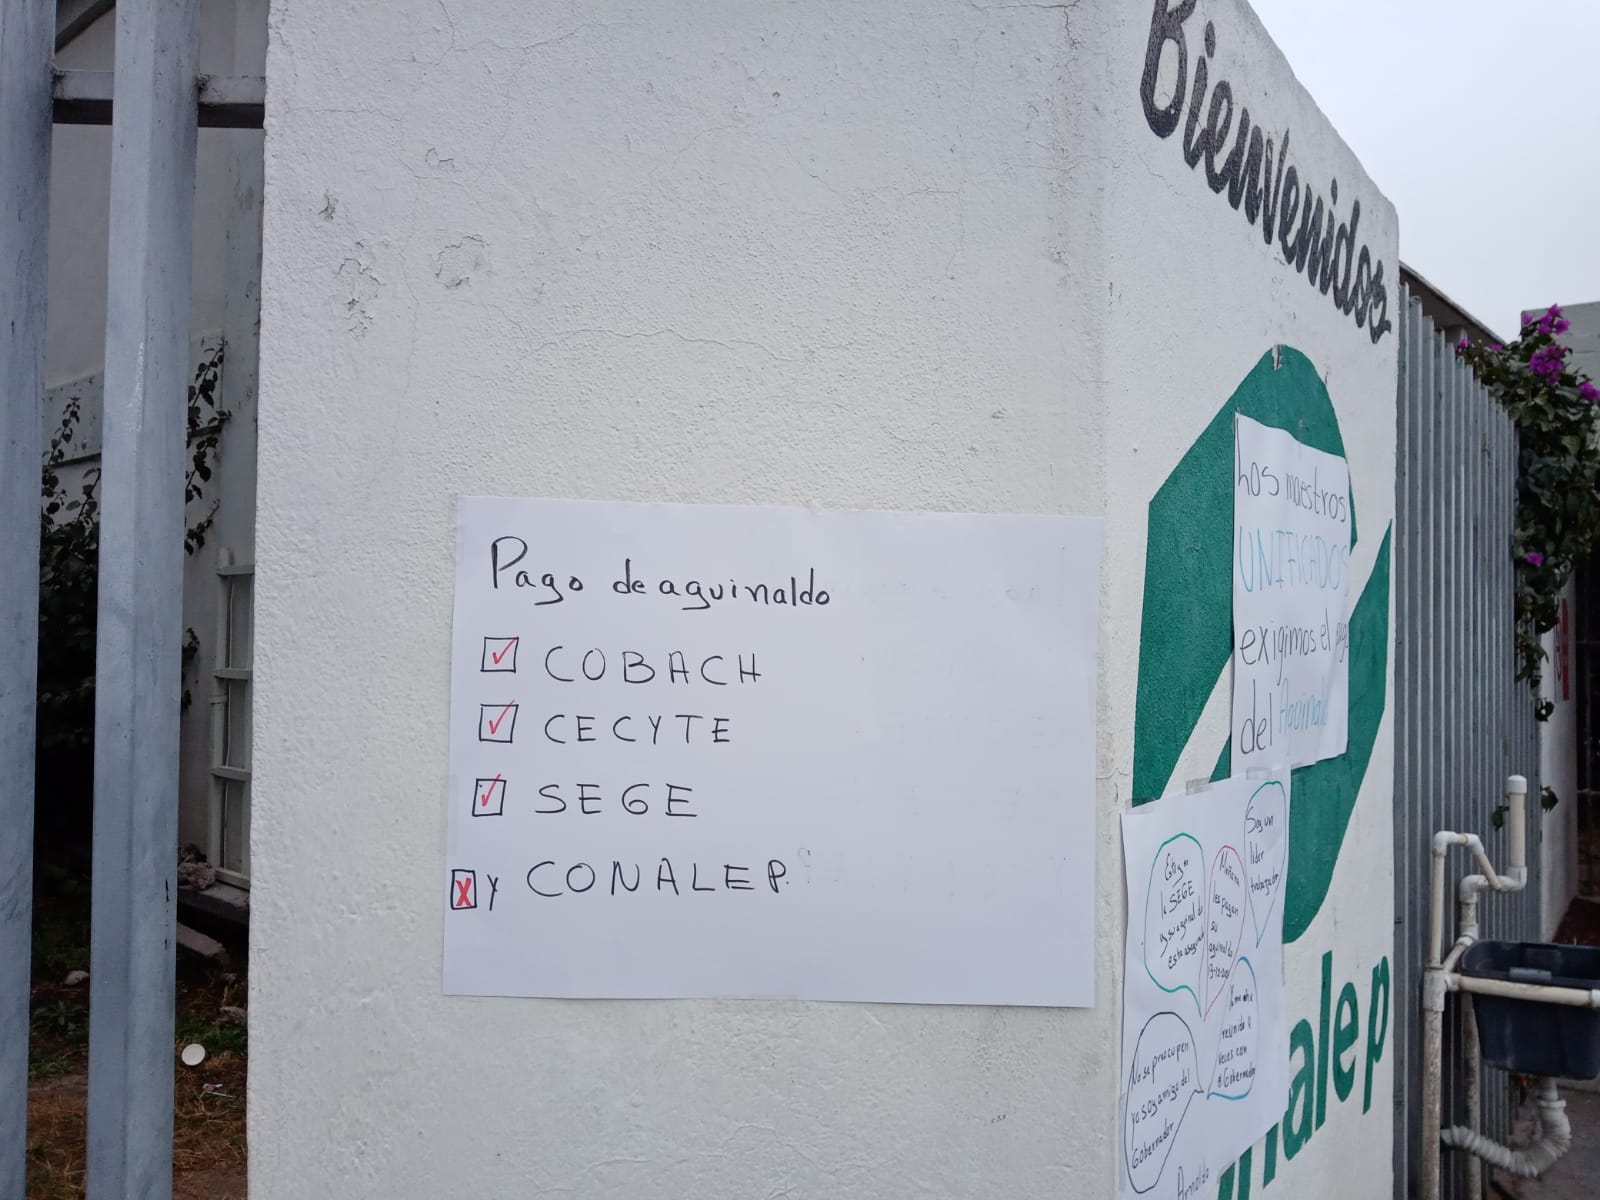 Bienvenidos
Pago de aguinaldo
COBACH
CECYTE
SEGE
X y CONALEP.
Los maestros
UNIFICADOS
exigimos el pago
del Aguinald
Soy un
lider
trabajador
Estoy en
la SEGE
y su aguinaldo
esta asegurado
Mañana
les pagan
su
aguinaldo
reunido
veces con
el Gobernador
No se preocupen
yo soy amigo del
Gobernador
Arnoldo
nalep